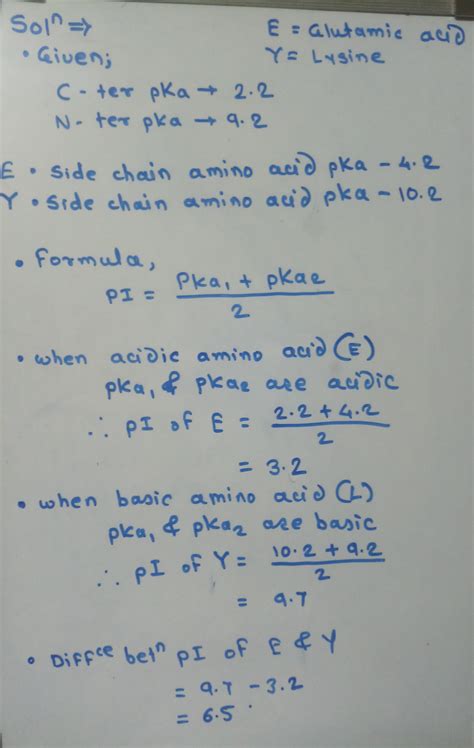 Solⁿ ⇒
E = Glutamic acid
Y = Lysine
• Given;
C - ter pKa → 2.2
N - ter pka → 9.2
E • Side chain amino acid pKa - 4.2
Y • Side chain amino acid pka - 10.2
• Formula,
PI = Pka₁ + pKa2 / 2
• when acidic amino acid (E)
pka₁ & pKa2 are acidic
∴ pI of E = 2.2 + 4.2 / 2
= 3.2
• when basic amino acid (L)
pka₁ & pKa₂ are basic
∴ pI of Y = 10.2 + 9.2 / 2
= 9.7
• Diffᶜᵉ betⁿ pI of E & Y
= 9.7 - 3.2
= 6.5